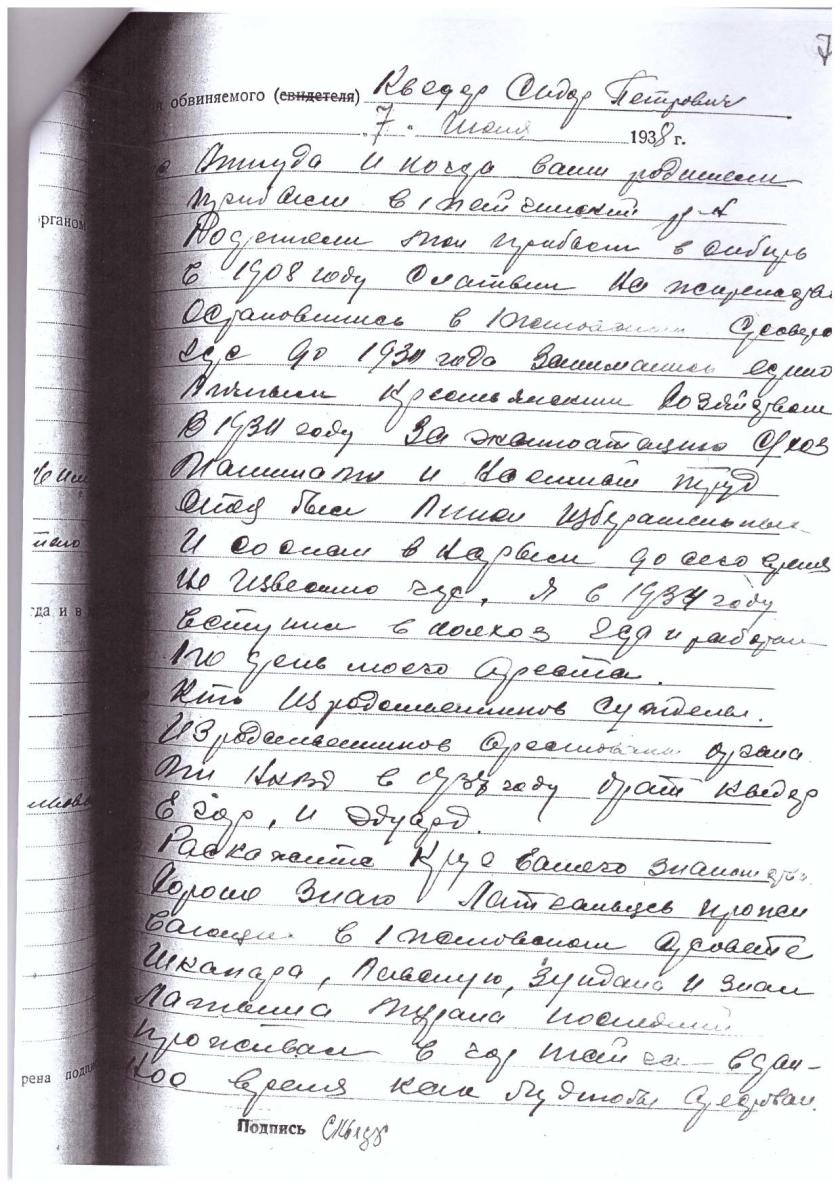 7
обвиняемого (свидетеля) Кведер Сидор Петрович
"7" Июня 1938 г.
Откуда и когда ваши родители
прибыли в Тайгинский р-н
Родители мои прибыли в Сибирь
в 1908 году с Латвии на жительство
остановились в
где до 193 года занимались едино
личным крестьянским хозяйством
В 193 году за эксплоатацию с/хоз
машинами и наемный труд
Отец был лишон избирательных
И сослан в Нарым до сего время
не известно где. Я в 193 году
вступил в колхоз где и работал
по день моего ареста.
Кто из родственников суждены.
Из родственников арестованы органа
ми НКВД в 1937 году брат Кведер
Егор, и Эдуард.
Раскажите круг вашего знакомства
Хорошо знаю Латгальцев прожи
вающих в сельсовете
Шкапара, Зундана и знал
Латыша последний
проживал в гор Тайга в дан-
ное время как будтобы арестован.
Подпись
органом
гда и в
рена подпи